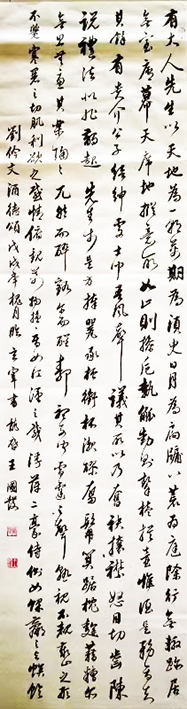 有大人先生以天地為一朝萬期為須臾日月為扃牖八荒為庭衢行無轍跡居
無室廬幕天席地縱意所如止則操卮執觚動則挈榼提壺唯酒是務焉知
其餘有貴介公子搢紳處士聞吾風聲議其所以乃奮袂攘襟怒目切齒陳
說禮法是非鋒起先生於是方捧罌承槽銜杯漱醪奮髯箕踞枕麴藉糟無
思無慮其樂陶陶兀然而醉豁爾而醒靜聽不聞雷霆之聲熟視不睹泰山之形
不覺寒暑之切肌利欲之感情俯觀萬物擾擾焉如江漢之載浮萍二豪侍側焉如蜾蠃之與螟蛉
劉伶文酒德頌戊戌年桃月 書 王國